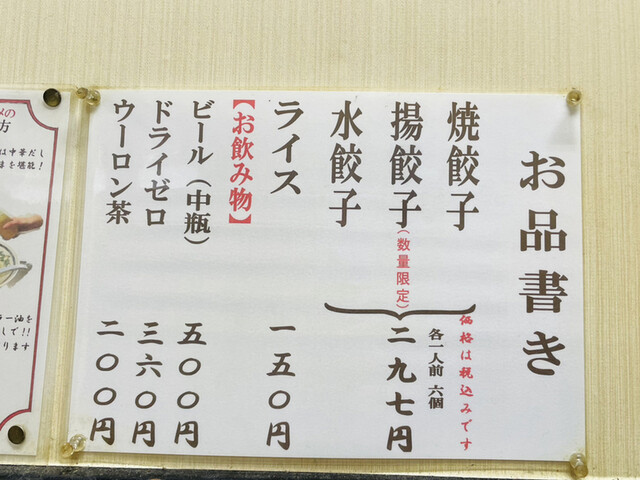 お品書き
価格は税込みです
焼餃子
揚餃子(数量限定)
水餃子
各一人前 六個
二九七円
ライス 一五〇円
【お飲み物】
ビール(中瓶) 五〇〇円
ドライゼロ 三六〇円
ウーロン茶 二〇〇円
方
は中華だし
を堪能!
ラー油を
しで!!
ります